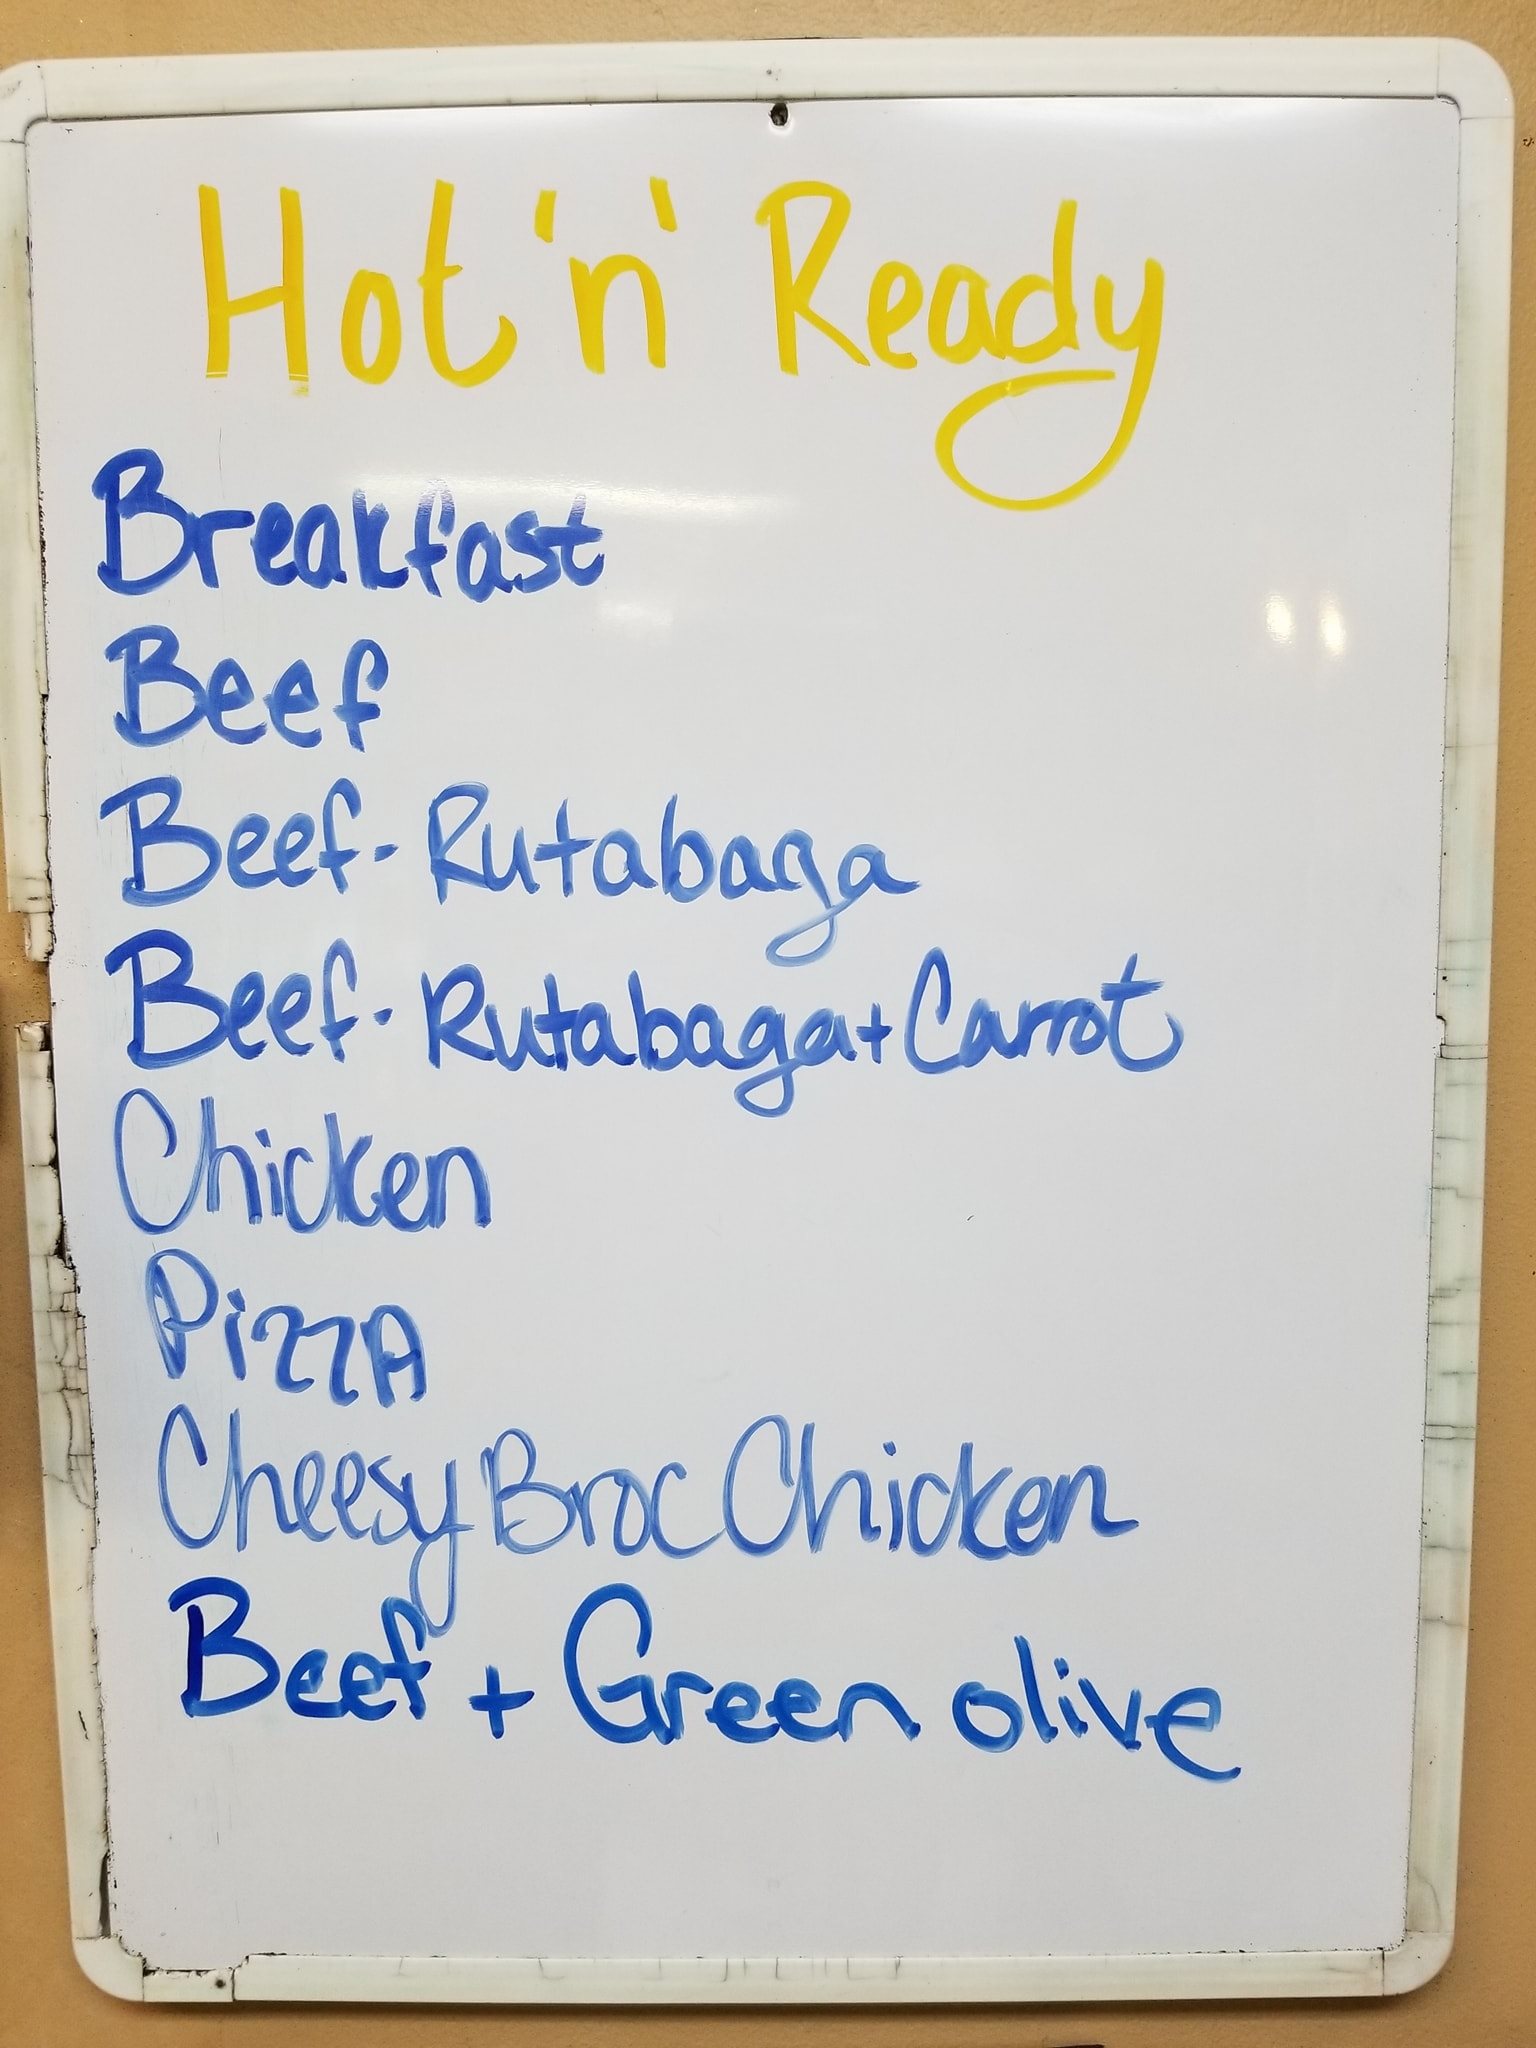 Hot 'n' Ready
Breakfast
Beef
Beef - Rutabaga
Beef - Rutabaga + Carrot
Chicken
PizzA
Cheesy Broc Chicken
Beef + Green olive